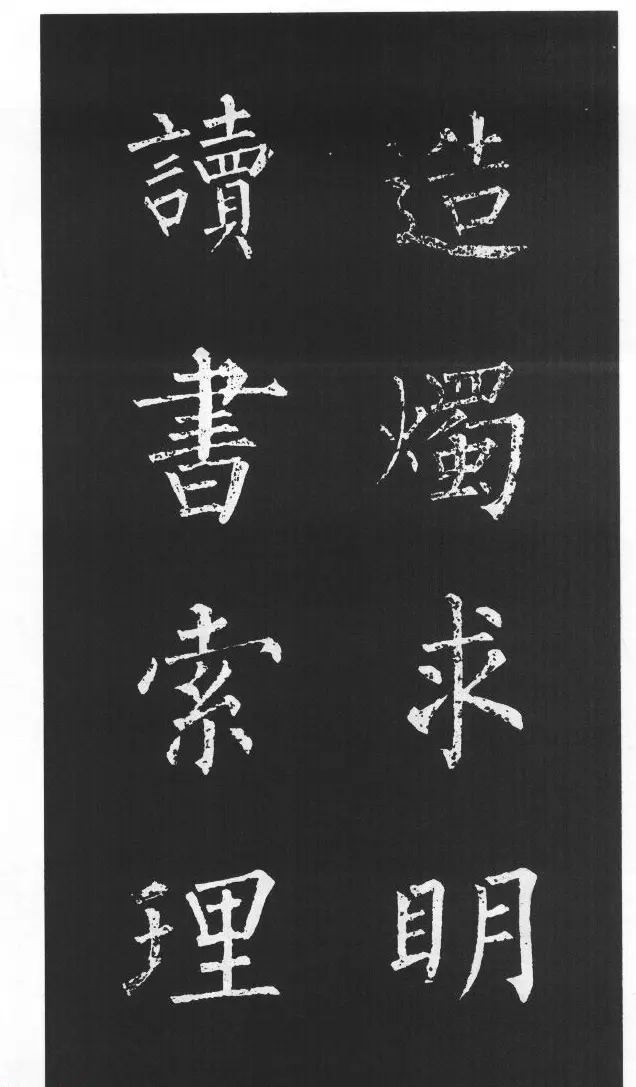 造燭求明
讀書索理